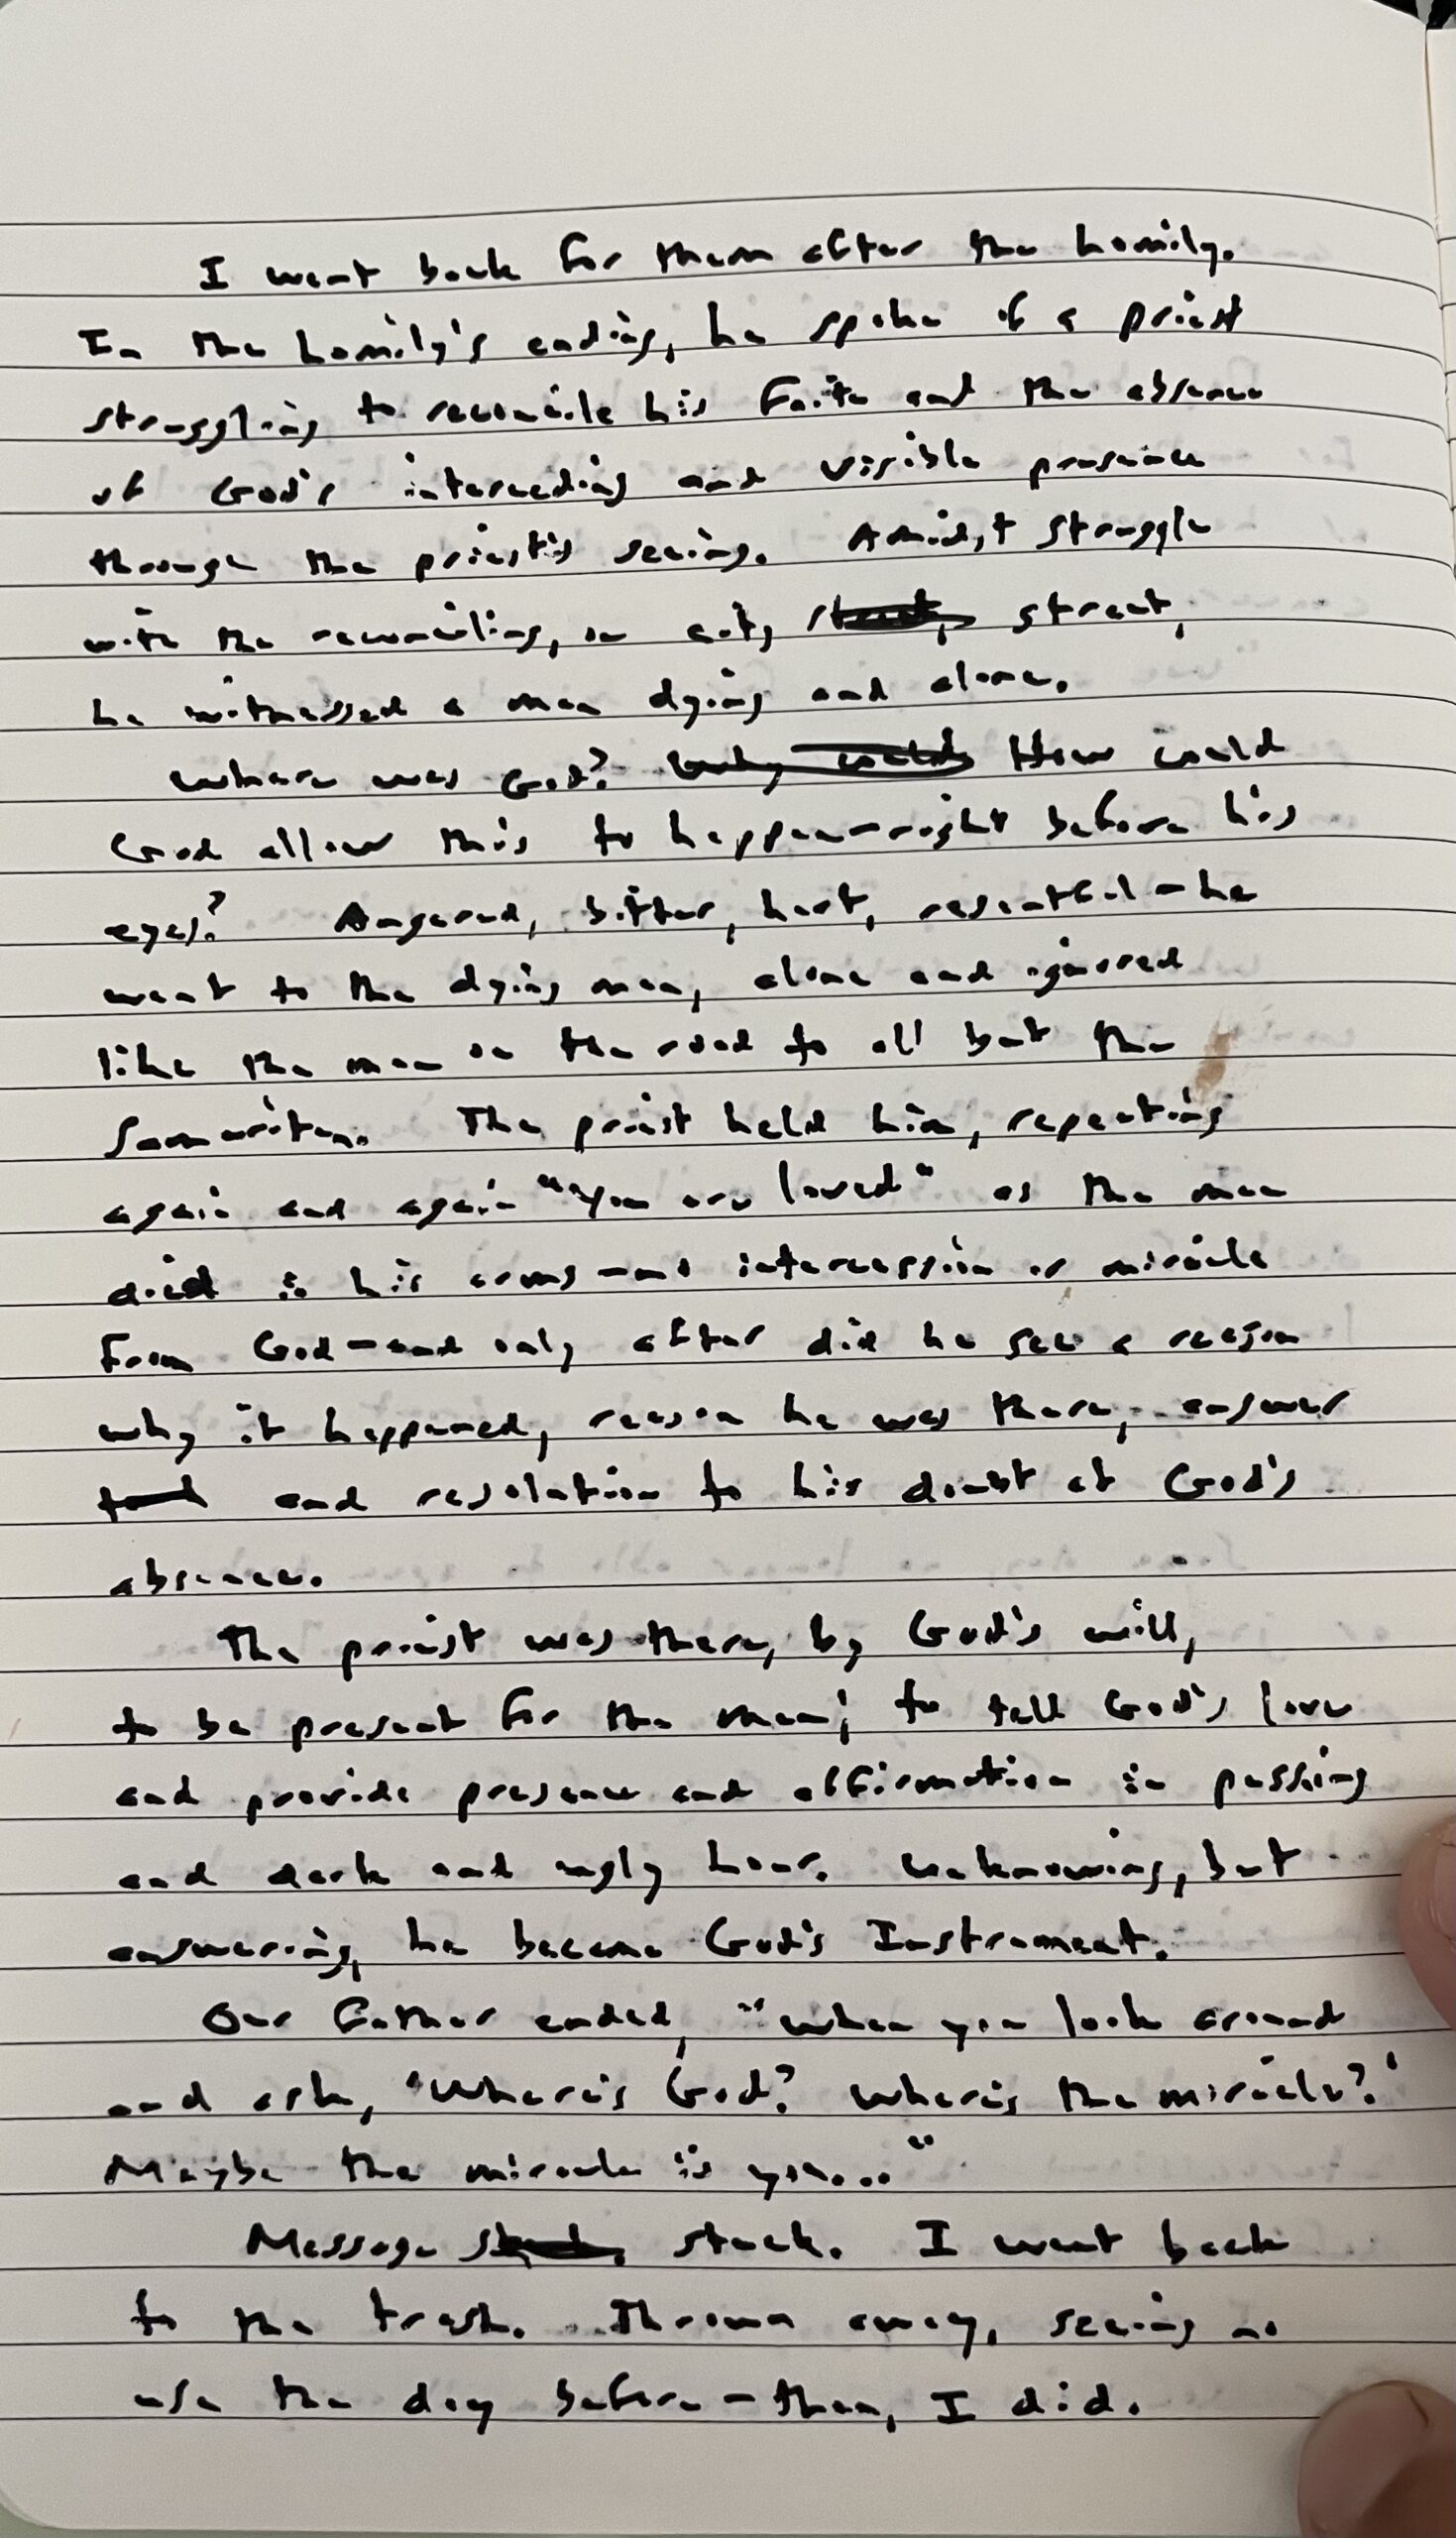 I went back for them after the homily.
In the homily's ending, he spoke of a priest
struggling to reconcile his faith and the absence
of God's interceding and visible presence
through the priest's seeing. Amidst struggle
with the reconciling, on city street,
he witnessed a man dying and alone.
Where was God? Why could How could
God allow this to happen—right before his
eyes? Angered, bitter, hurt, resentful—he
went to the dying man, alone and ignored
like the man on the road to all but the
Samaritan. The priest held him, repeating
again and again "you are loved" as the man
died in his arms—no intercession or miracle
from God—and only after did he see a reason
why it happened, reason he was there, answer
and resolution to his doubt at God's
absence.
The priest was there, by God's will,
to be present for the man; to tell God's love
and provide presence and affirmation in passing
and dark and ugly hour. Unknowing, but
answering, he became God's Instrument.
Our Father ended, "When you look around
and ask, 'Where's God? Where's the miracle?'
Maybe the miracle is you..."
Message stuck. I went back
to the trash. Thrown away, seeing no
use the day before—then, I did.